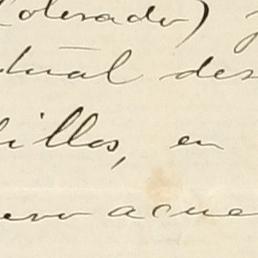 Colorado)
tual des
illos, en
evo acue